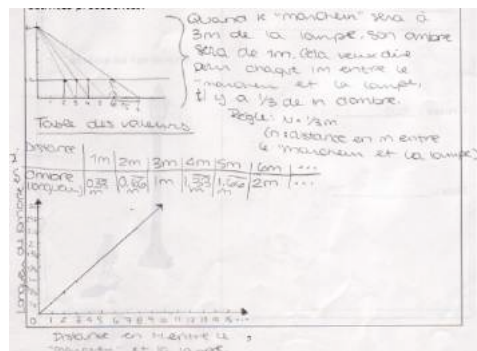 Quand le "marcheur" sera à
3m de la lampe, son ombre
sera de 1m. Cela veux dire
pour chaque 1m entre le
"marcheur" et la lampe,
il y a 1/3 de m d'ombre.
Règle: N = 1/3 m
(n = distance en m entre
le "marcheur" et la lampe)
Table des valeurs
Distance | 1m | 2m | 3m | 4m | 5m | 6m | ...
ombre (longueur) | 0.33 m | 0.66 m | 1m | 1.33 m | 1.66 m | 2m | ...
Longueur de l'ombre en
0 1 2 3 4 5 6 7 8 9 10 11 12 13 14 15 ...
Distance en m entre le
"marcheur" et la lampe